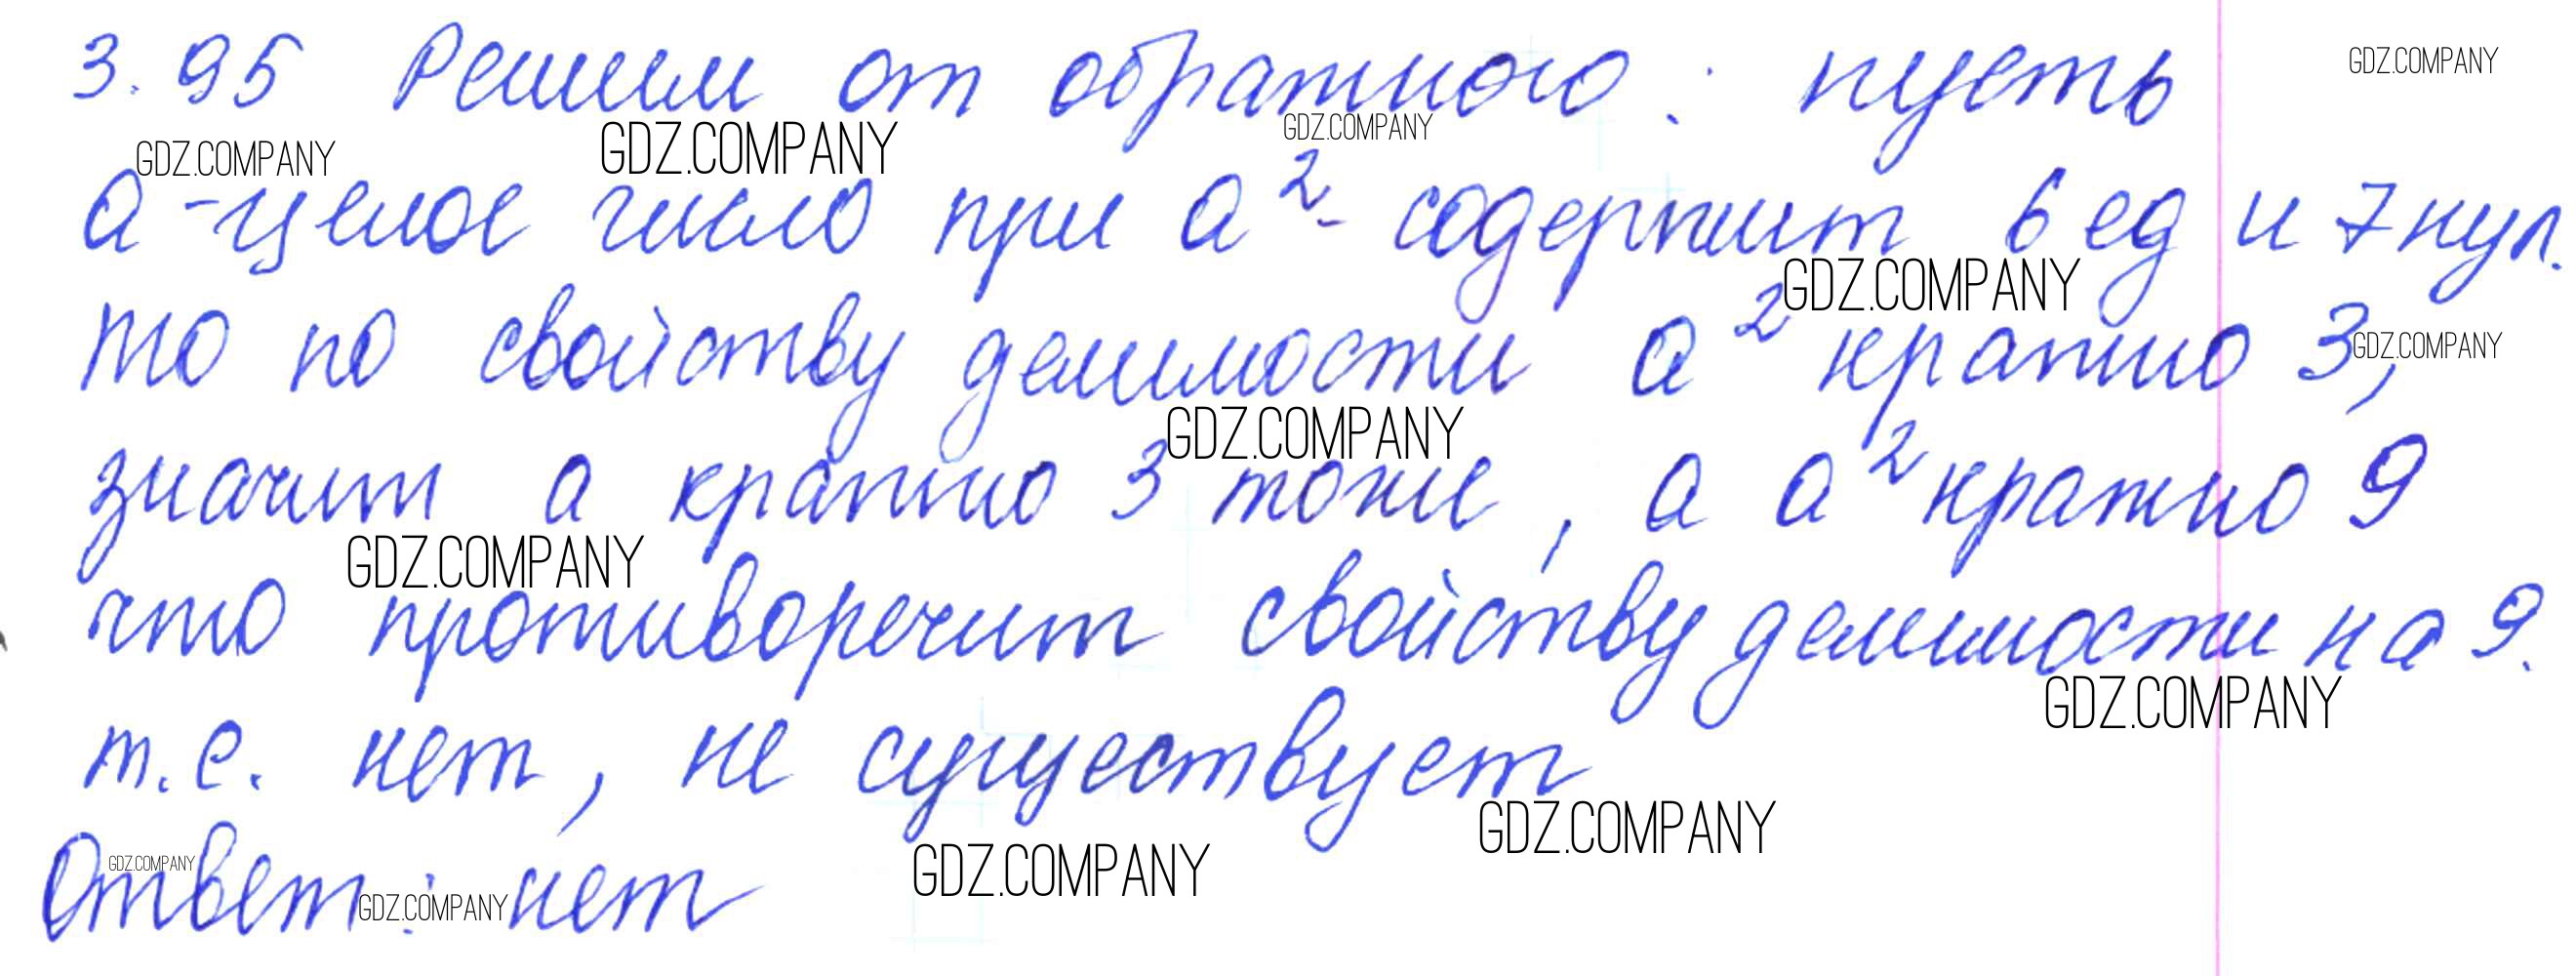 3.95 Решим от обратного: пусть
GDZ.COMPANY
GDZ.COMPANY
GDZ.COMPANY
GDZ.COMPANY
а - целое число при а² - содержит 6 ед и 7 нул.
GDZ.COMPANY
то по свойству делимости а² кратно 3,
GDZ.COMPANY
GDZ.COMPANY
значит а кратно 3 тоже, а а² кратно 9
GDZ.COMPANY
что противоречит свойству делимости на 9.
GDZ.COMPANY
т.е. нет, не существует
GDZ.COMPANY
GDZ.COMPANY
GDZ.COMPANY
Ответ: нет
GDZ.COMPANY